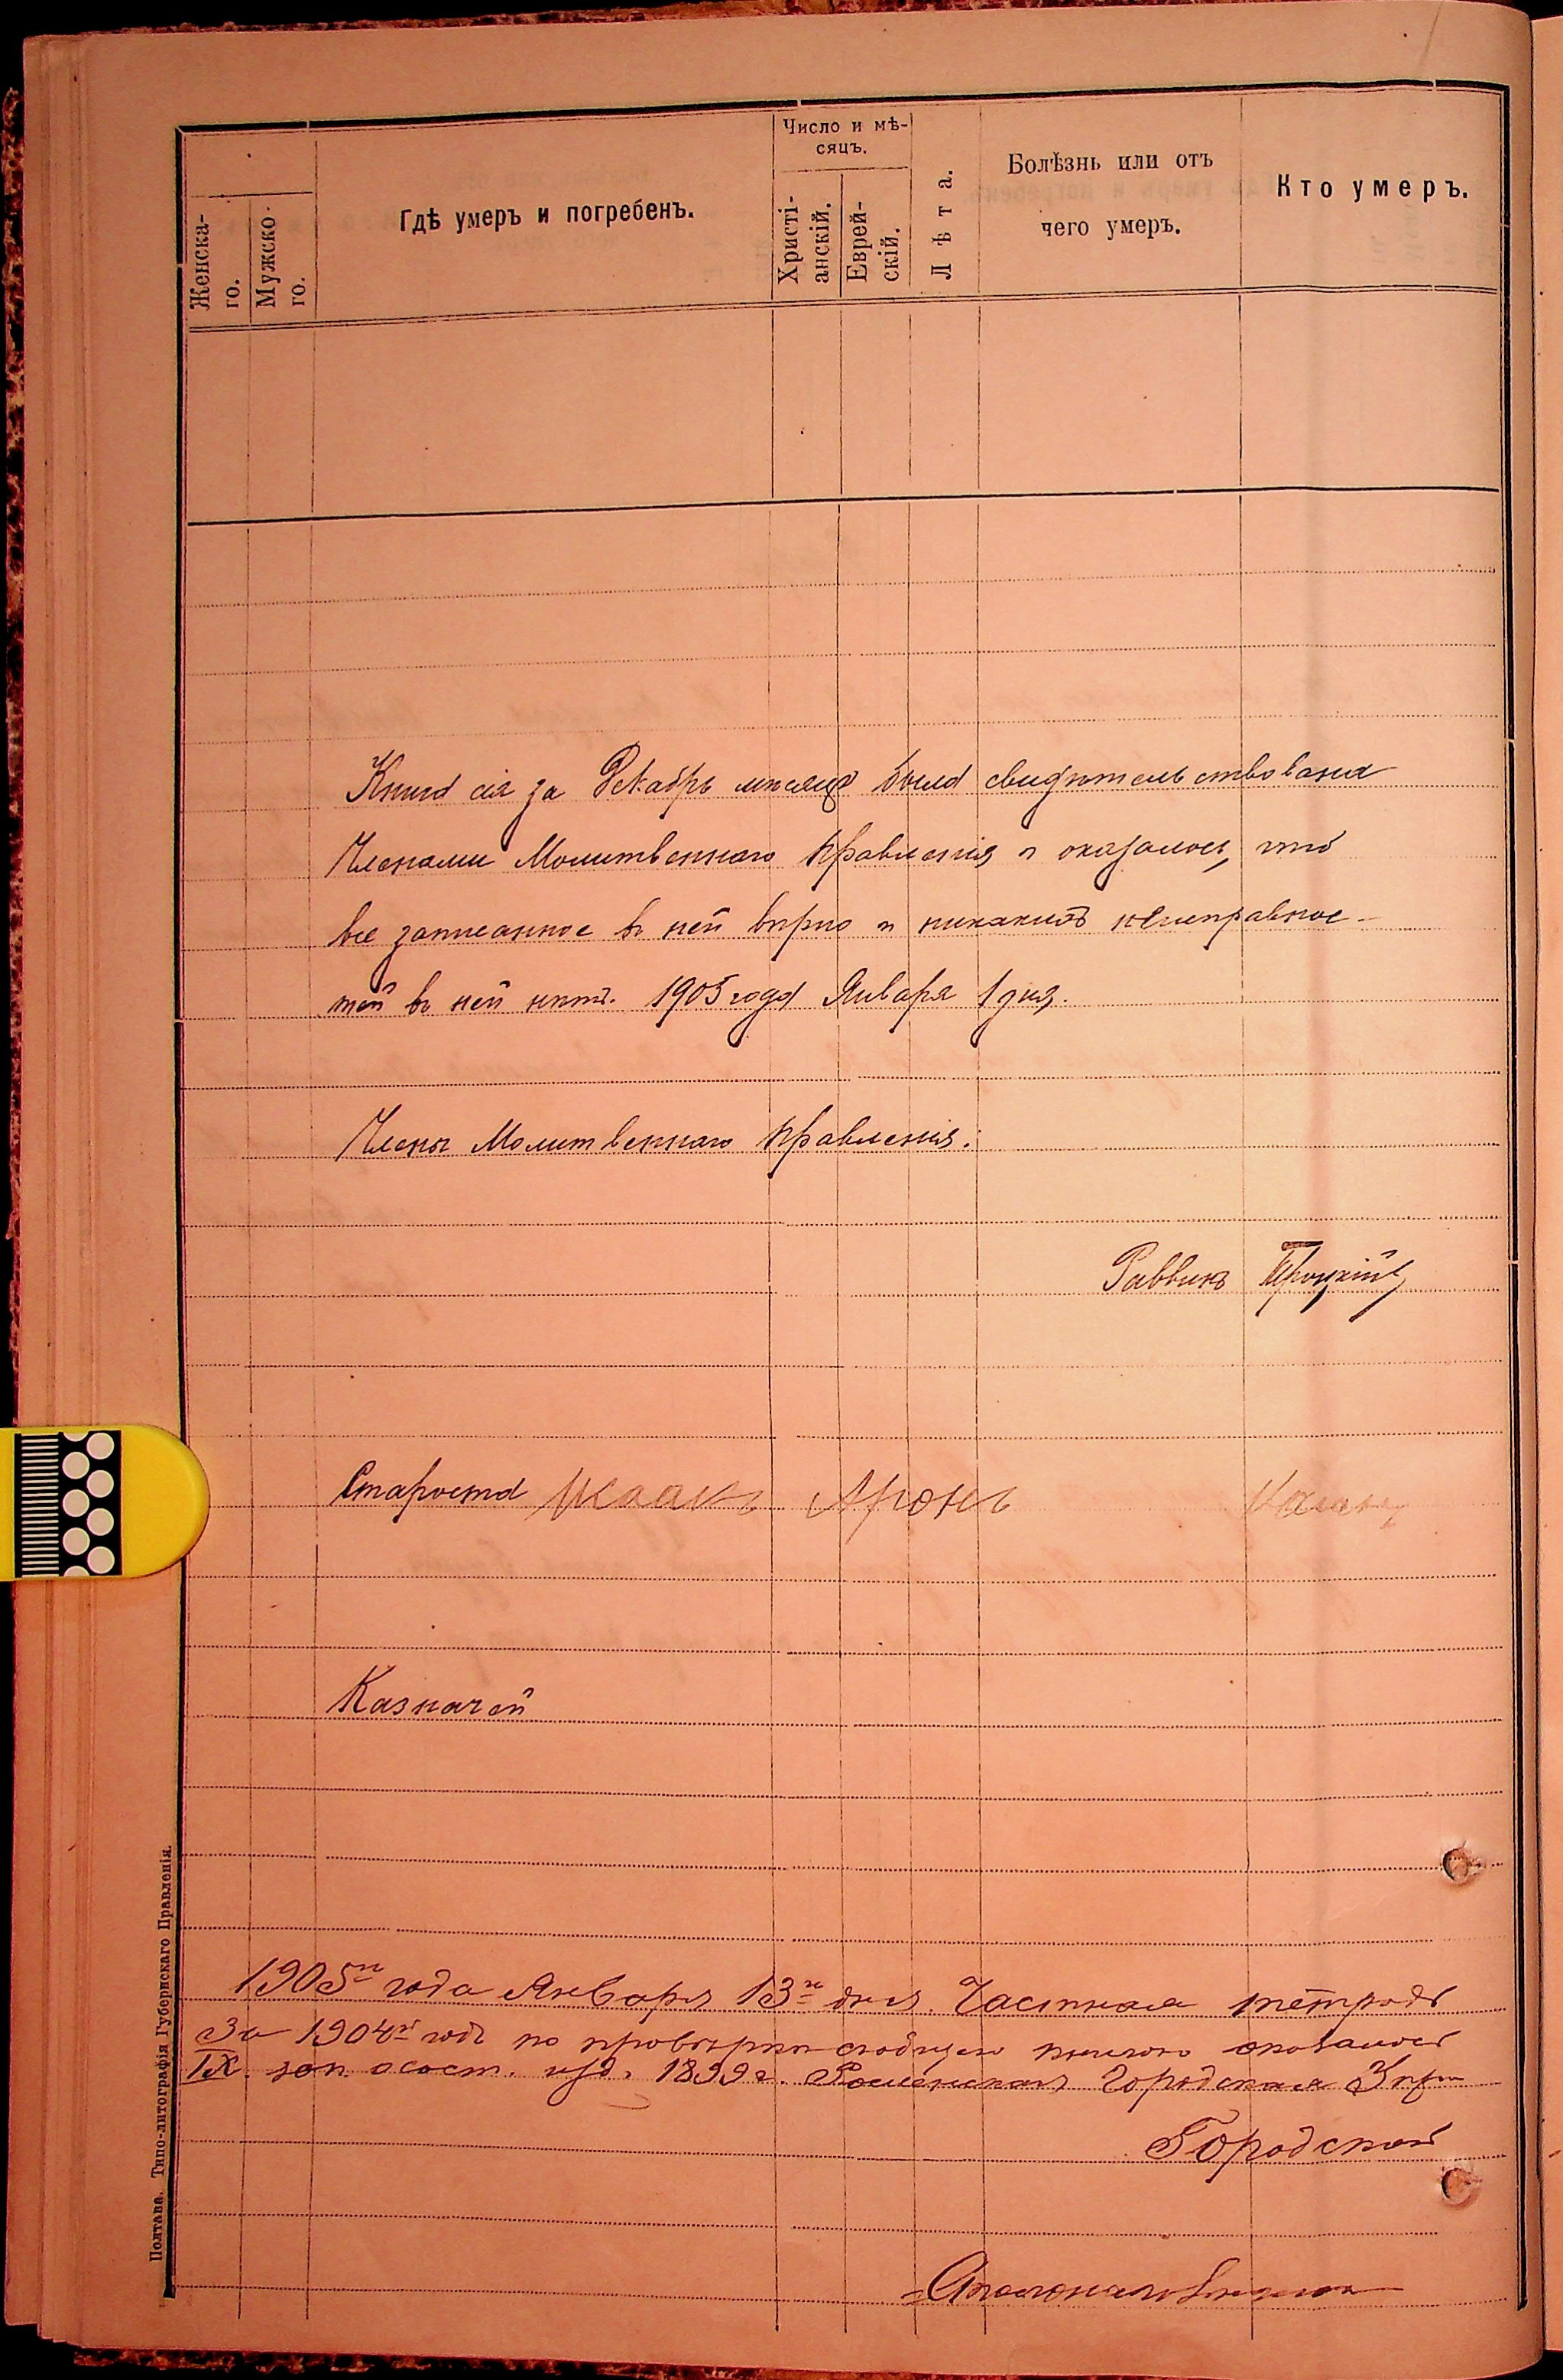 Женска-
го.
Мужско-
го.
Гдѣ умеръ и погребенъ.
Число и мѣ-
сяцъ.
Христі-
анскій.
Еврей-
скій.
Лѣта.
Болѣзнь или отъ
чего умеръ.
Кто умеръ.
Книга сія за Декабрь мѣсяцъ была свидѣтельствована
Членами Молитвеннаго правленія и оказалось, что
все записанное въ ней вѣрно и никакихъ неисправнос-
тей въ ней нѣтъ. 1905 года Января 1 дня.
Члены Молитвеннаго правленія:
Раввинъ Троцкій
Староста Исаакъ Аронъ
Казначей
1905го года Января 13го дня. Частная тетрадь
За 1904й годъ по провѣркѣ съ общею книгою оказалось
IX. зак. о сост. изд. 1899 г. Роменская Городская
Городской
Полтава. Типо-литографія Губернскаго Правленія.